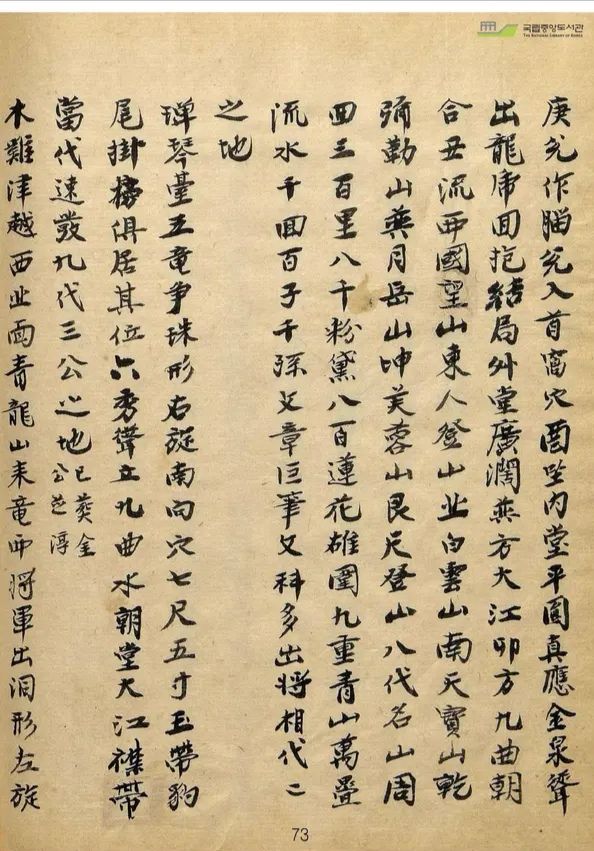 국립중앙도서관
THE NATIONAL LIBRARY OF KOREA
庚兌作腦兌入首窩穴酉坐內堂平圓真應金泉聳
出龍席回抱結局外堂廣濶巽方大江卯方九曲朝
合丑流西國望山東人登山北白雲山南天寶山乾
弥勒山巽月岳山坤芙蓉山艮尺登山八代名山周
回三百里八千粉黛八百蓮花雄圍九重青山萬疊
流水千回百子千孫文章巨筆文科多出將相代二
之地
弾琴臺五竜争珠形右旋南向穴七尺五寸玉帶豹
尾掛榜俱居其位六秀聳立九曲水朝堂大江襟帶
當代速發九代三公之地已葬金公芝淳
木難津越西北面青龍山来竜西將軍出洞形左旋
73